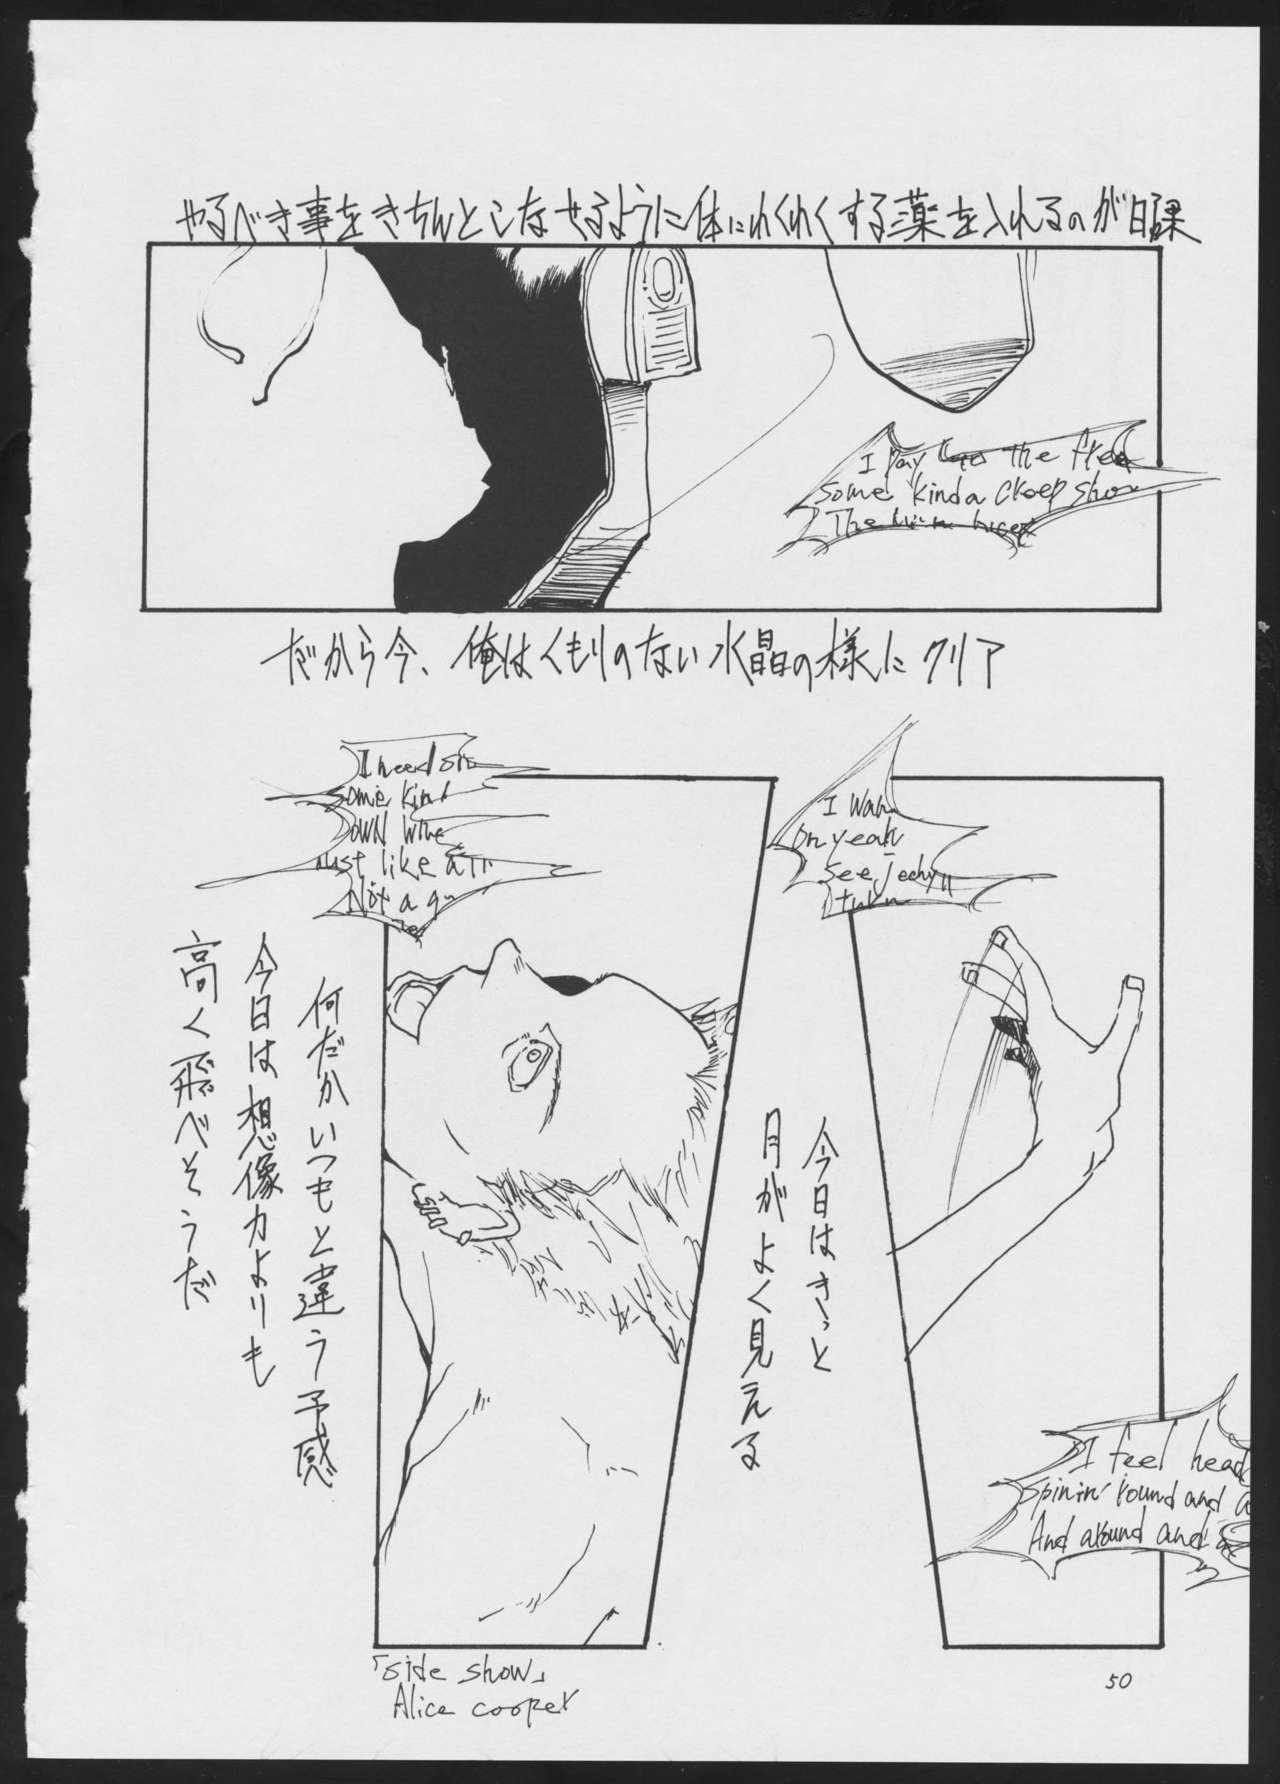 やるべき事をきちんとこなせるように体にわくわくする薬を入れるのが日課
I pay the
some kinda creep show
The
だから今、俺はくもりのない水晶の様にクリア
I wan
Oh yeah
See
turn
今日はきっと
月がよく見える
I feel head
spinin' round and a
And around and
I need
some kind
DOWN
Just like a
Not a
何だかいつもと違う予感
今日は想像力よりも
高く飛べそうだ
「side show」
Alice cooper
50